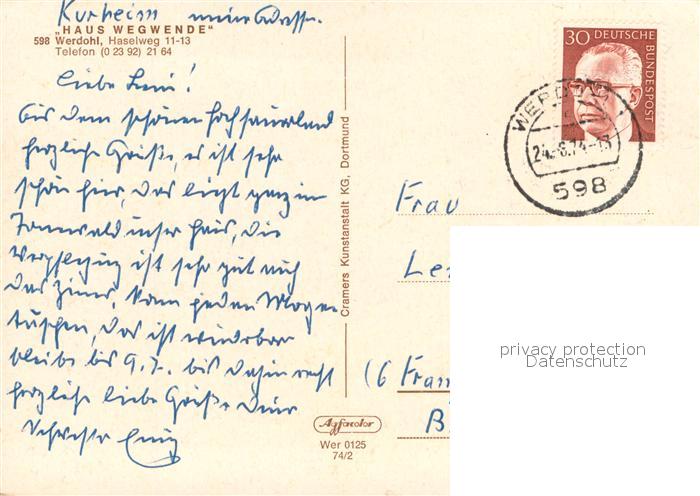 Kurheim meine Adresse.
„HAUS WEGWENDE"
598 Werdohl, Haselweg 11-13
Telefon (0 23 92) 21 64
Liebe Leni!
Aus dem schönen Hochsauerland
herzliche Grüße, es ist sehr
schön hier, das liegt ganz im
Tannwald unser Haus, die
Verpflegung ist sehr gut auch
das Zimer, kann jeden Morgen
duschen, das ist wunderbar
bleibe bis 9.7. bis dahin recht
herzliche liebe Grüße Deine
Schwester
Cramers Kunstanstalt KG, Dortmund
Agfacolor
Wer 0125
74/2
30 DEUTSCHE BUNDESPOST
WERDOHL
24.-6.74-13
598
Frau
Le
(6 Fran
B
privacy protection
Datenschutz